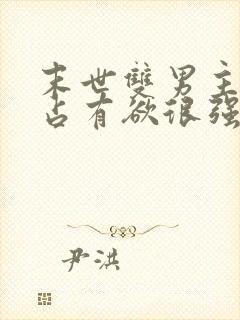 末世雙男主
占有欲很強
尹洪